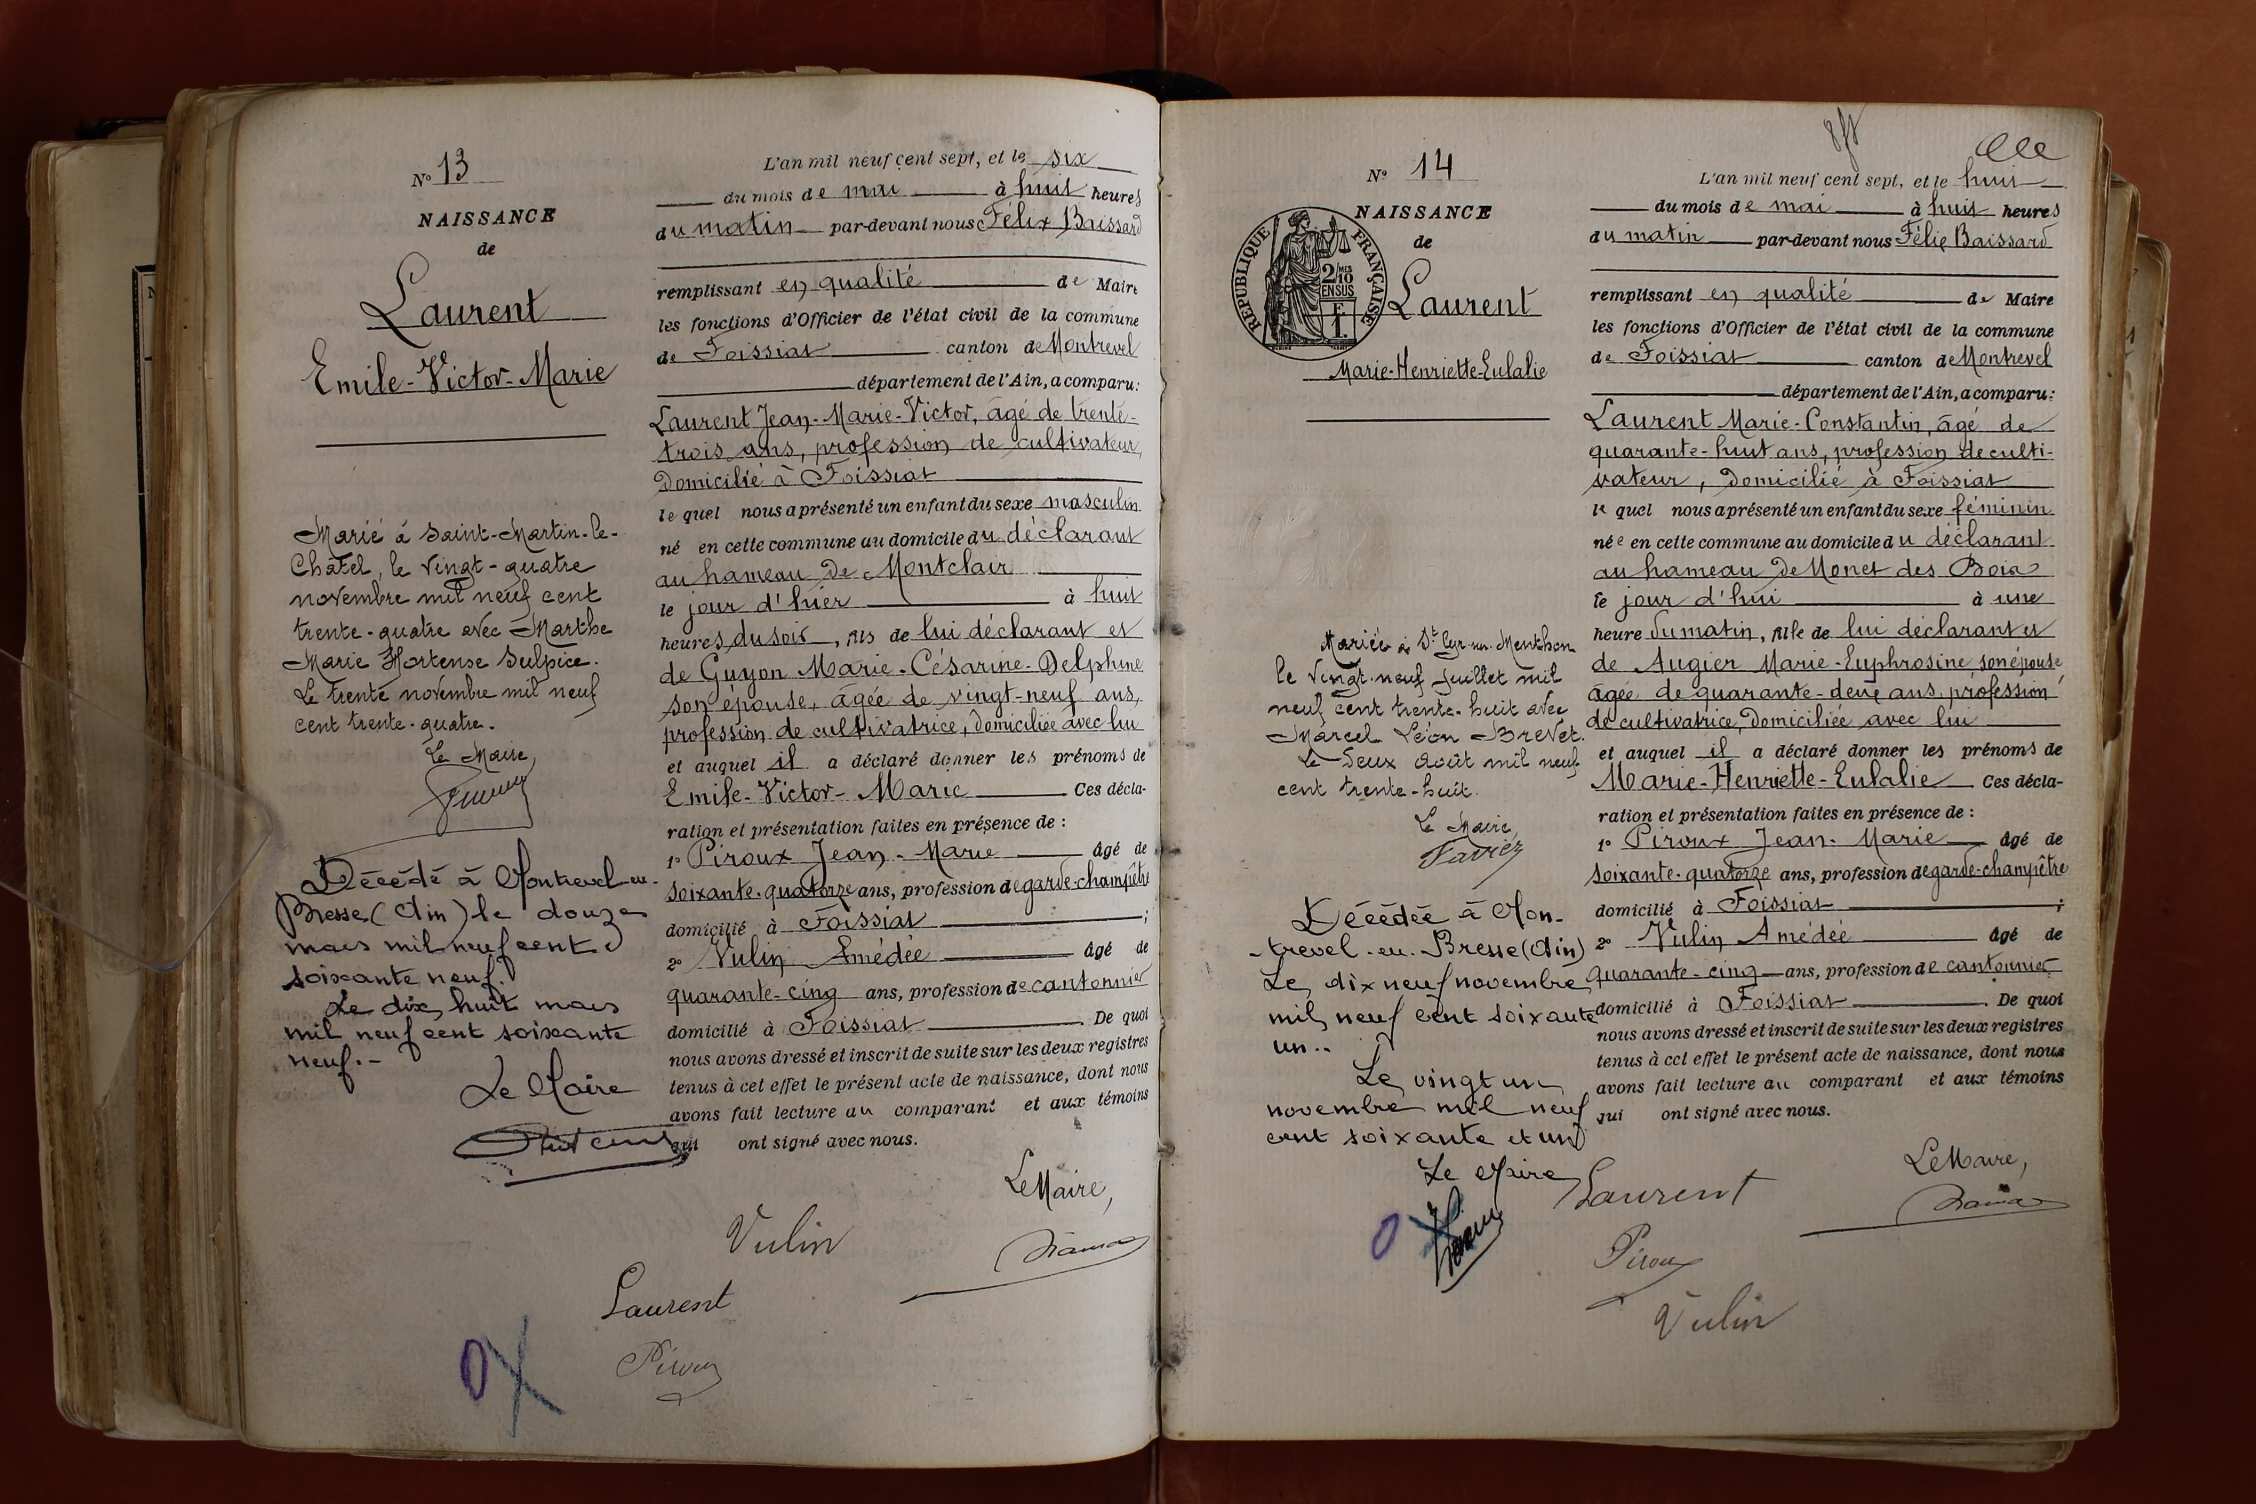 N° 13
NAISSANCE
de
Laurent
Emile-Victor-Marie
Marié à Saint-Martin-le-
Châtel, le vingt-quatre
novembre mil neuf cent
trente-quatre avec Marthe
Marie Hortense Sulpice.
Le trente novembre mil neuf
cent trente-quatre.
Le Maire,
Décédé à Montrevel-en-
Bresse (Ain) le douze
mars mil neuf cent
soixante neuf.
Le dix huit mars
mil neuf cent soixante
neuf.-
Le Maire
L'an mil neuf cent sept, et le six
du mois de mai à huit heures
du matin par-devant nous Félix Baissard
remplissant en qualité de Maire
les fonctions d'Officier de l'état civil de la commune
de Foissiat canton de Montrevel
département de l'Ain, a comparu:
Laurent Jean-Marie-Victor, âgé de trente-
trois ans, profession de cultivateur,
domicilié à Foissiat
le quel nous a présenté un enfant du sexe masculin
né en cette commune au domicile du déclarant
au hameau de Montclair
le jour d'hier à huit
heures du soir, fils de lui déclarant et
de Guyon Marie-Césarine-Delphine
son épouse, âgée de vingt-neuf ans,
profession de cultivatrice, domiciliée avec lui
et auquel il a déclaré donner les prénoms de
Emile-Victor-Marie Ces décla-
ration et présentation faites en présence de :
1° Piroux Jean-Marie âgé de
soixante-quatorze ans, profession de garde-champêtre
domicilié à Foissiat ;
2° Vulin Amédée âgé de
quarante-cinq ans, profession de cantonnier
domicilié à Foissiat De quoi
nous avons dressé et inscrit de suite sur les deux registres
tenus à cet effet le présent acte de naissance, dont nous
avons fait lecture au comparant et aux témoins
qui ont signé avec nous.
Le Maire,
Vulin
Laurent
Piroux
N° 14
NAISSANCE
de
RÉPUBLIQUE FRANÇAISE
2/10
EN SUS
Laurent
Marie-Henriette-Eulalie
Mariée à St Cyr-sur-Menthon
le vingt-neuf juillet mil
neuf cent trente-huit avec
Marcel Léon Brevet.
Le deux août mil neuf
cent trente-huit.
Le Maire,
Favier
Décédée à Mon-
trevel-en-Bresse (Ain)
Le dix neuf novembre
mil neuf cent soixante
un..
Le vingt un
novembre mil neuf
cent soixante et un
Le Maire
L'an mil neuf cent sept, et le huit
du mois de mai à huit heures
du matin par-devant nous Félix Baissard
remplissant en qualité de Maire
les fonctions d'Officier de l'état civil de la commune
de Foissiat canton de Montrevel
département de l'Ain, a comparu:
Laurent Marie-Constantin, âgé de
quarante-huit ans, profession de culti-
vateur, domicilié à Foissiat
le quel nous a présenté un enfant du sexe féminin
née en cette commune au domicile du déclarant
au hameau de Monet des Bois
le jour d'hui à une
heure du matin, fille de lui déclarant et
de Augier Marie-Euphrosine son épouse
âgée de quarante-deux ans, profession
de cultivatrice, domiciliée avec lui
et auquel il a déclaré donner les prénoms de
Marie-Henriette-Eulalie Ces décla-
ration et présentation faites en présence de :
1° Piroux Jean-Marie âgé de
soixante-quatorze ans, profession de garde-champêtre
domicilié à Foissiat ;
2° Vulin Amédée âgé de
quarante-cinq ans, profession de cantonnier
domicilié à Foissiat. De quoi
nous avons dressé et inscrit de suite sur les deux registres
tenus à cet effet le présent acte de naissance, dont nous
avons fait lecture au comparant et aux témoins
qui ont signé avec nous.
Le Maire,
Laurent
Piroux
Vulin